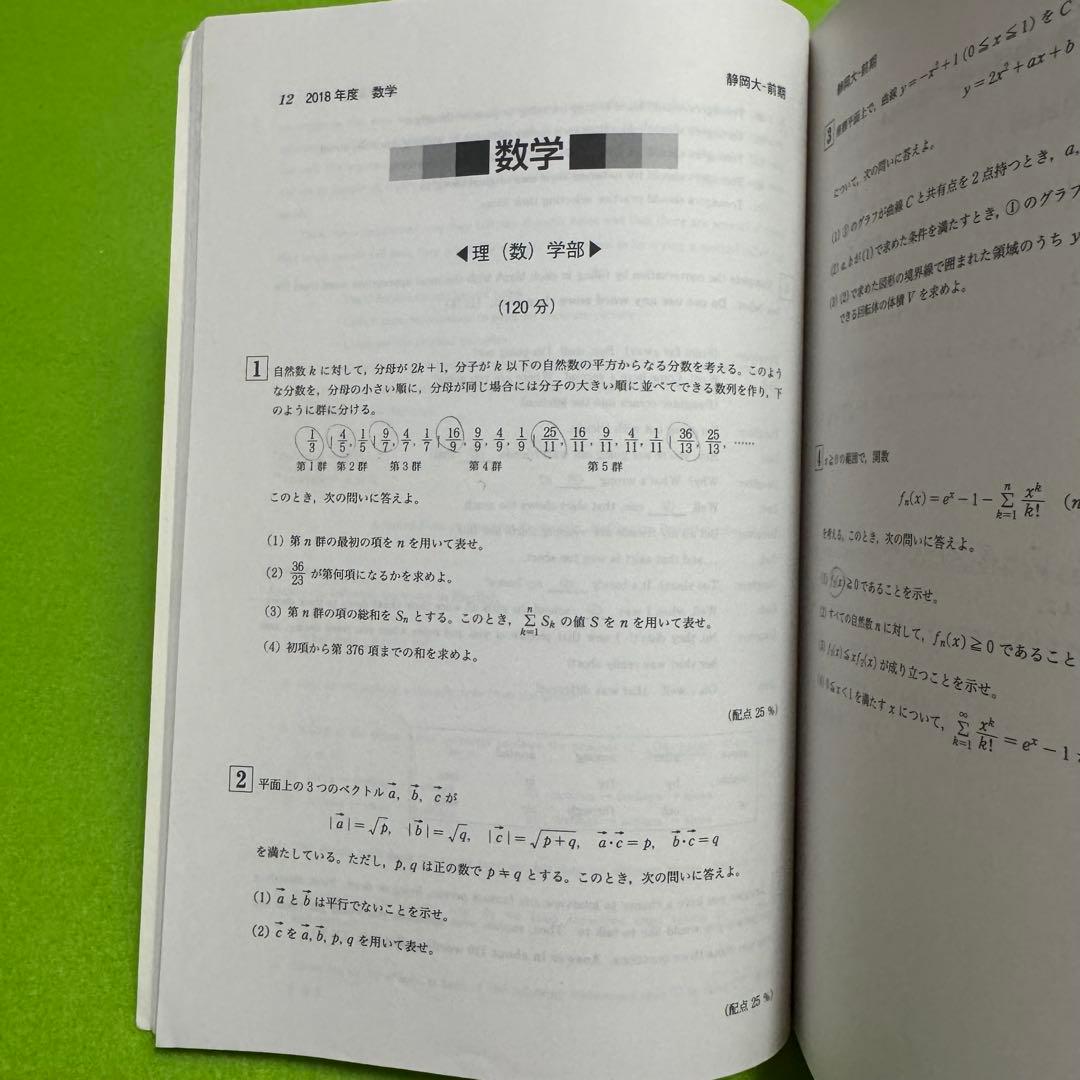 12 2018年度 数学
静岡大-前期
数学
◀理(数)学部▶
(120分)
1 自然数 k に対して,分母が 2k+1,分子が k 以下の自然数の平方からなる分数を考える。このよう
な分数を,分母の小さい順に,分母が同じ場合には分子の大きい順に並べてできる数列を作り,下
のように群に分ける。
1/3 | 4/5, 1/5 | 9/7, 4/7, 1/7 | 16/9, 9/9, 4/9, 1/9 | 25/11, 16/11, 9/11, 4/11, 1/11 | 36/13, 25/13, ……
第1群 第2群 第3群 第4群 第5群
このとき,次の問いに答えよ。
(1) 第 n 群の最初の項を n を用いて表せ。
(2) 36/23 が第何項になるかを求めよ。
(3) 第 n 群の項の総和を Sn とする。このとき,Σ[k=1→n] Sk の値 S を n を用いて表せ。
(4) 初項から第 376 項までの和を求めよ。
(配点 25 %)
2 平面上の3つのベクトル a→, b→, c→ が
|a→|=√p, |b→|=√q, |c→|=√(p+q), a→・c→=p, b→・c→=q
を満たしている。ただし,p, q は正の数で p≠q とする。このとき,次の問いに答えよ。
(1) a→ と b→ は平行でないことを示せ。
(2) c→ を a→, b→, p, q を用いて表せ。
(配点 25 %)
静岡大-前期
3 座標平面上で,曲線 y=-x²+1 (0≦x≦1) を C
y=2x²+ax+b
について,次の問いに答えよ。
(1) ①のグラフが曲線 C と共有点を2点持つとき,a,
(2) a, b が(1)で求めた条件を満たすとき,①のグラフ
(3) (2)で求めた図形の境界線で囲まれた領域のうち y
できる回転体の体積 V を求めよ。
4 x≧0の範囲で,関数
fn(x)=e^x-1-Σ[k=1→n] x^k/k! (n
を考える。このとき,次の問いに答えよ。
(1) f1(x)≧0であることを示せ。
(2) すべての自然数 n に対して,fn(x)≧0であること
(3) f3(x)≦xf2(x) が成り立つことを示せ。
(4) 0≦x<1を満たす x について,Σ[k=1→∞] x^k/k!=e^x-1